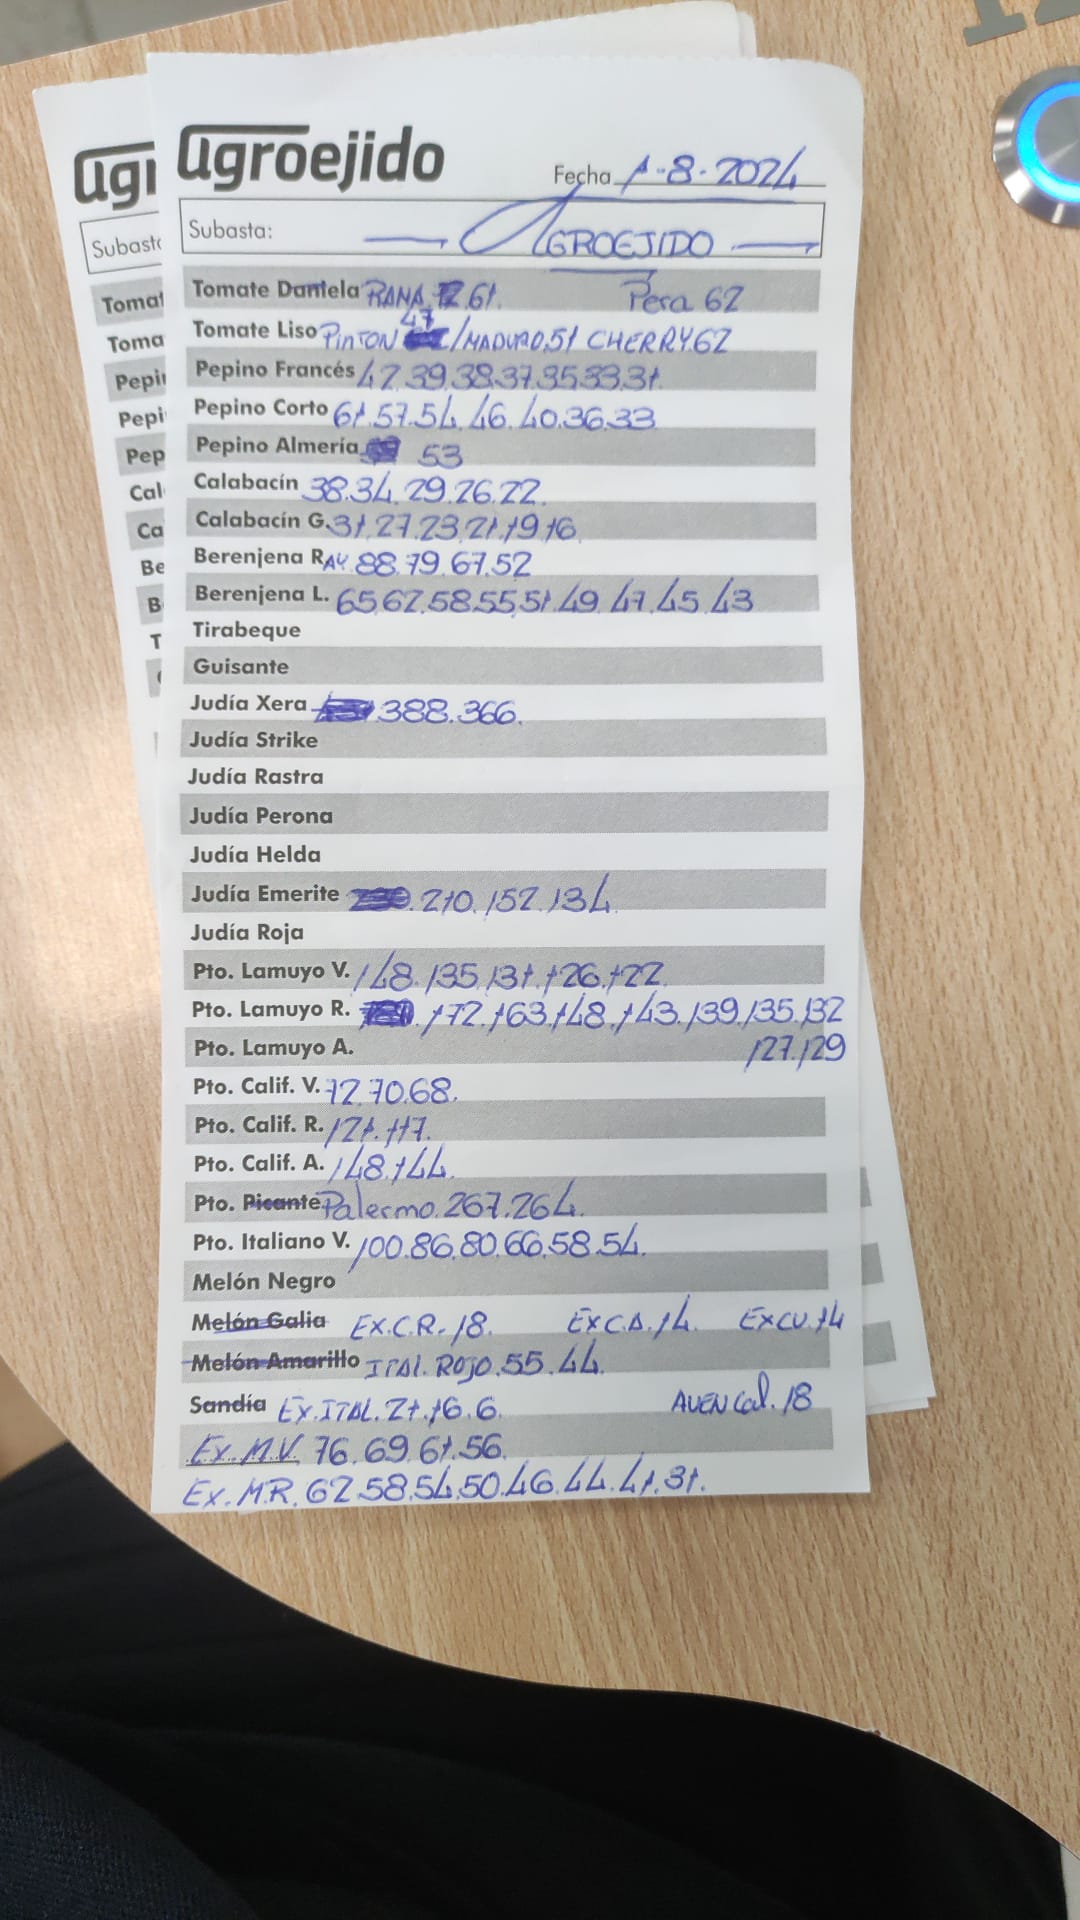 agroejido
Fecha 1-8-2024
Subasta: AGROEJIDO
Tomate Daniela RAMA 72.61. Pera 62
Tomate Liso PINTON 47 /MADURO.51 CHERRY.62
Pepino Francés 42.39.38.37.35.33.31.
Pepino Corto 61.57.54.46.40.36.33
Pepino Almería 53
Calabacín 38.34.29.26.22.
Calabacín G. 31.27.23.21.19.16.
Berenjena RAY. 88.79.67.52
Berenjena L. 65.62.58.55.51.49.47.45.43
Tirabeque
Guisante
Judía Xera 388.366.
Judía Strike
Judía Rastra
Judía Perona
Judía Helda
Judía Emerite 210.152.134.
Judía Roja
Pto. Lamuyo V. 148.135.131.126.122.
Pto. Lamuyo R. 172.163.148.143.139.135.132
Pto. Lamuyo A. 127.129
Pto. Calif. V. 72.70.68.
Pto. Calif. R. 121.117.
Pto. Calif. A. 148.144.
Pto. Picante Palermo.267.264.
Pto. Italiano V. 100.86.80.66.58.54.
Melón Negro
Melón Galia EX.C.R.18. EXC.A.14. EXCV.14
Melón Amarillo ITAL. ROJO.55.44.
Sandía EX.ITAL.21.16.6. AVEN Cal.18
Ex.M.V. 76.69.61.56.
Ex.M.R.62.58.54.50.46.44.41.31.
ugr
Subasta
Tomat
Toma
Pepi
Pepi
Pep
Cal
Ca
Be
B
T